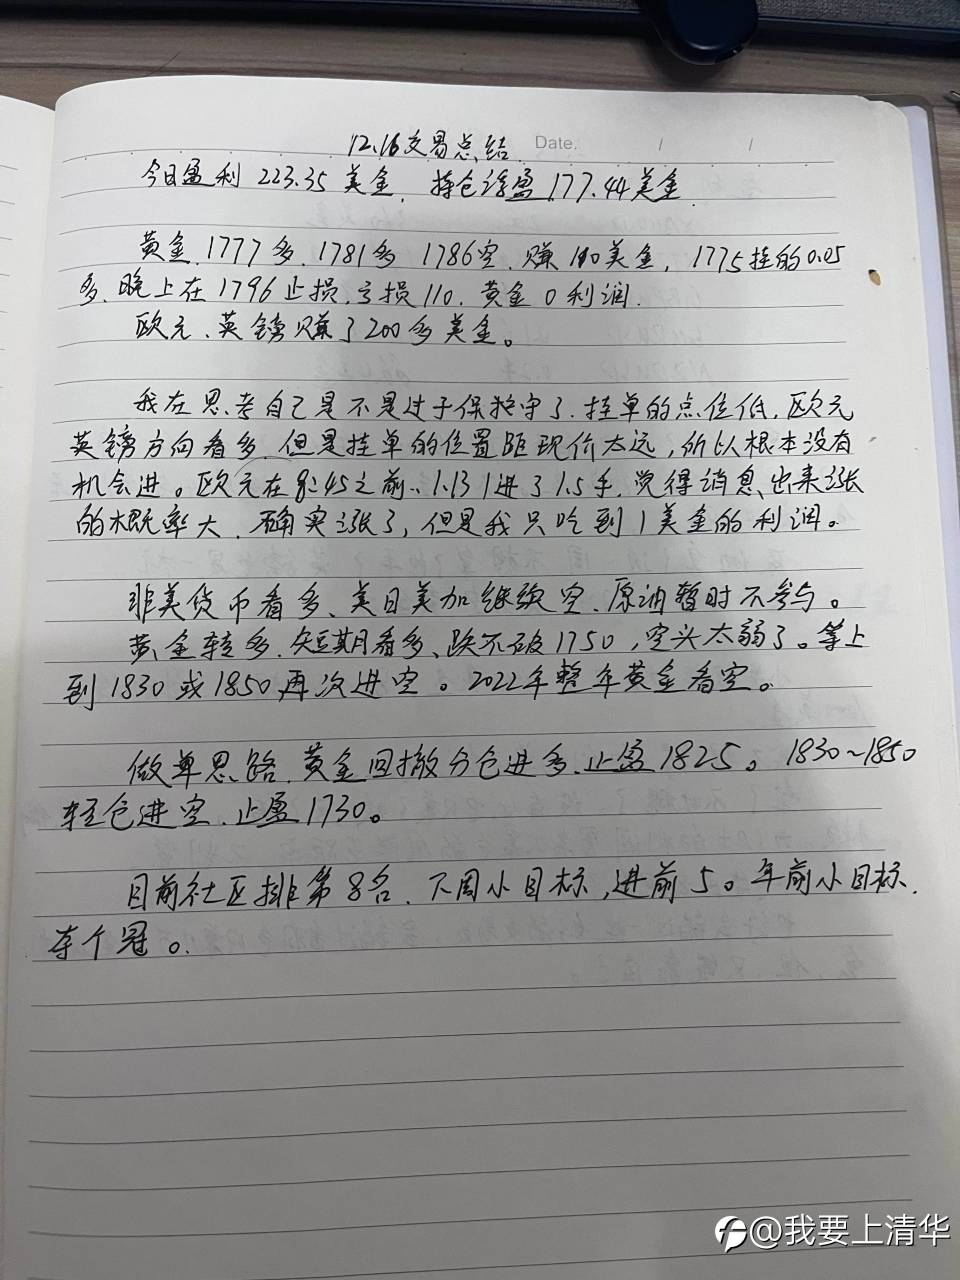 12.16交易总结
Date.
今日盈利 223.35 美金. 持仓浮盈 177.44美金
黄金, 1777多, 1781多 1786空, 赚110美金, 1775挂的0.05
多, 晚上在1796止损, 亏损110. 黄金0利润.
欧元、英镑赚了200多美金。
我在思考自己是不是过于保守了. 挂单的点位低, 欧元
英镑方向看多, 但是挂单的位置距现价太远, 所以根本没有
机会进。欧元在8:45之前.. 1.131进了1.5手, 觉得消息出来涨
的概率大, 确实涨了, 但是我只吃到1美金的利润。
非美货币看多、美日美加继续空, 原油暂时不参与。
黄金转多, 短期看多、跌不破1750, 空头太弱了。等上
到1830或1850再次进空。2022年整年黄金看空。
做单思路, 黄金回撤分仓进多, 止盈1825。1830~1850
轻仓进空, 止盈1730。
目前社区排第8名, 下周小目标, 进前5。年前小目标,
夺个冠。
@我要上清华